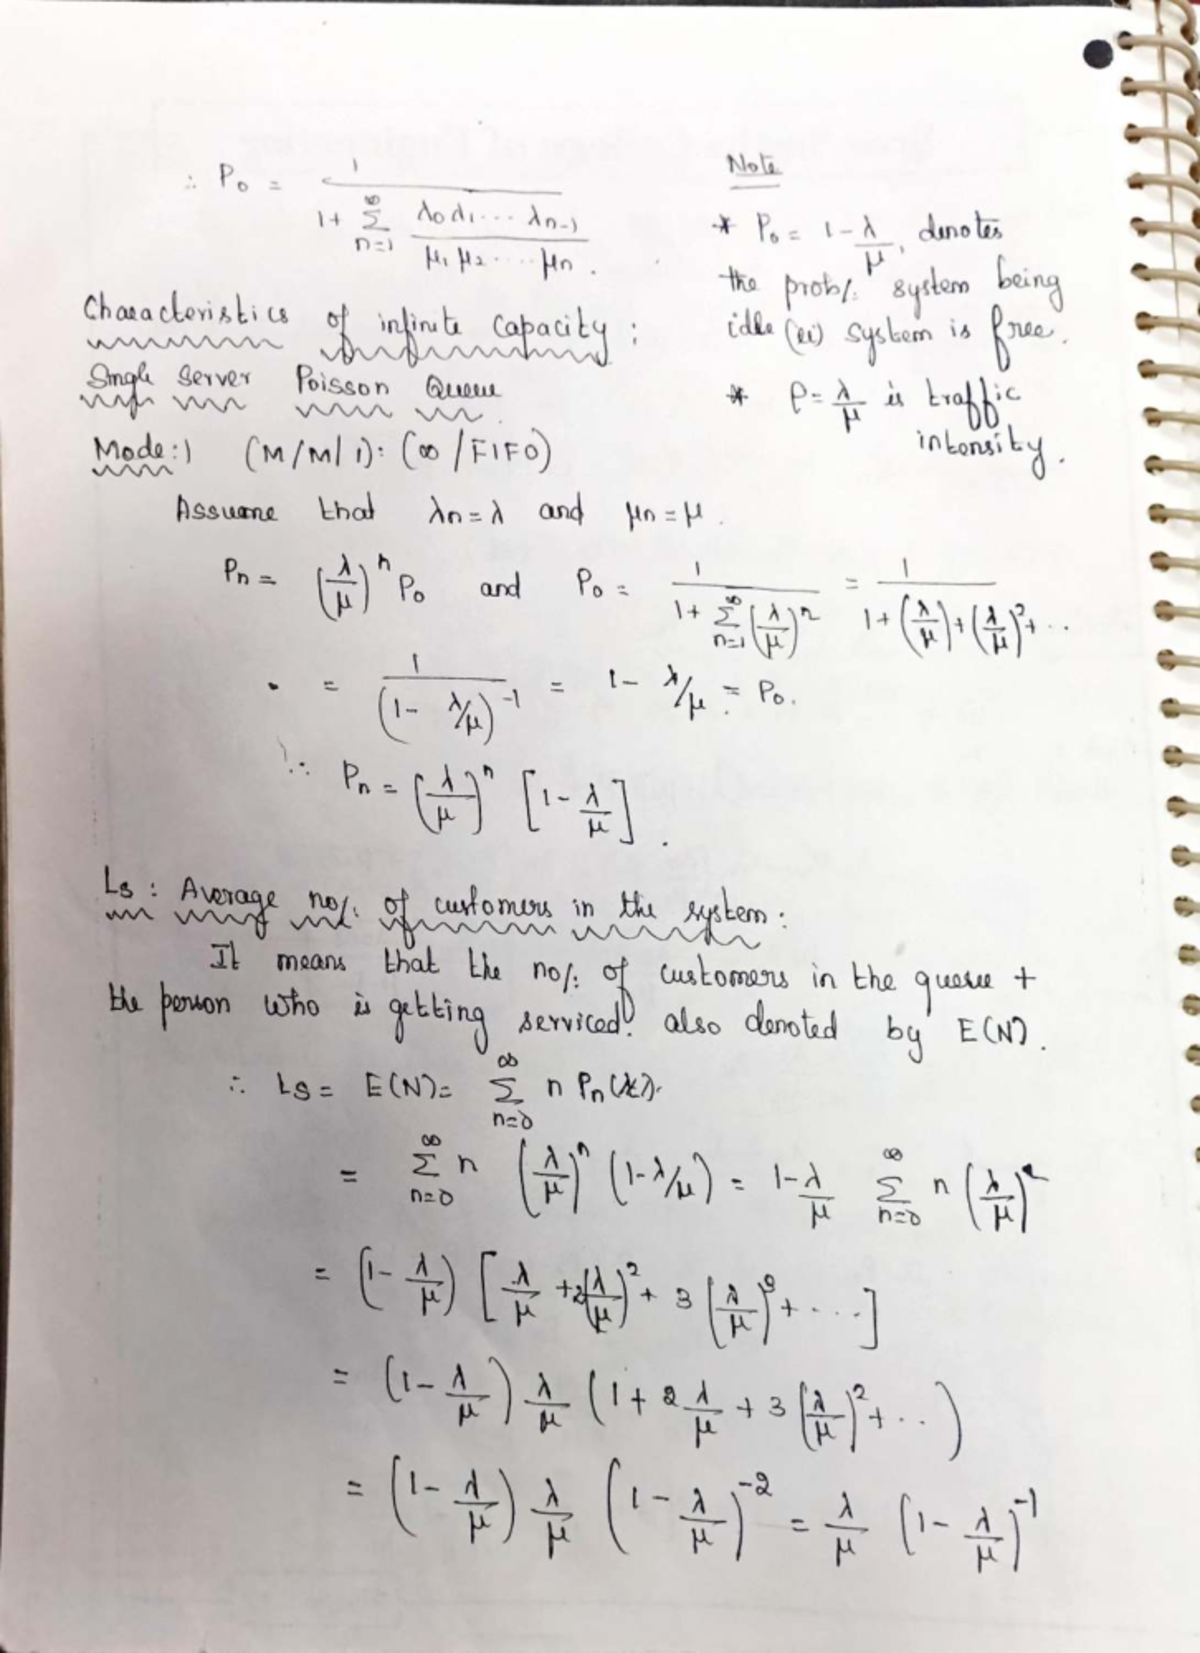 ∴ P₀ = 1 / (1 + Σ_{n=1}^{∞} (λ₀ λ₁ ... λₙ₋₁ / μ₁ μ₂ ... μₙ)).
Note
* P₀ = 1 - λ/μ, denotes
the prob/: system being
idle (ie) system is free.
* ρ = λ/μ is traffic
intensity.
Characteristics of infinite capacity:
Single Server Poisson Queue
Mode:1 (M/M/1): (∞/FIFO)
Assume that λn = λ and μn = μ.
Pn = (λ/μ)ⁿ P₀ and P₀ = 1 / (1 + Σ_{n=1}^{∞} (λ/μ)ⁿ) = 1 / (1 + (λ/μ) + (λ/μ)² + ...
= 1 / (1 - λ/μ)⁻¹ = 1 - λ/μ = P₀.
∴ Pn = (λ/μ)ⁿ [1 - λ/μ].
Ls : Average no/: of customers in the system:
It means that the no/: of customers in the queue +
the person who is getting serviced. also denoted by E(N).
∴ Ls = E(N) = Σ_{n=0}^{∞} n Pn(t).
= Σ_{n=0}^{∞} n (λ/μ)ⁿ (1 - λ/μ) = 1 - λ/μ Σ_{n=0}^{∞} n (λ/μ)ⁿ
= (1 - λ/μ) [λ/μ + 2(λ/μ)² + 3 (λ/μ)³ + ....]
= (1 - λ/μ) λ/μ (1 + 2 λ/μ + 3 (λ/μ)² + ..)
= (1 - λ/μ) λ/μ (1 - λ/μ)⁻² = λ/μ (1 - λ/μ)⁻¹